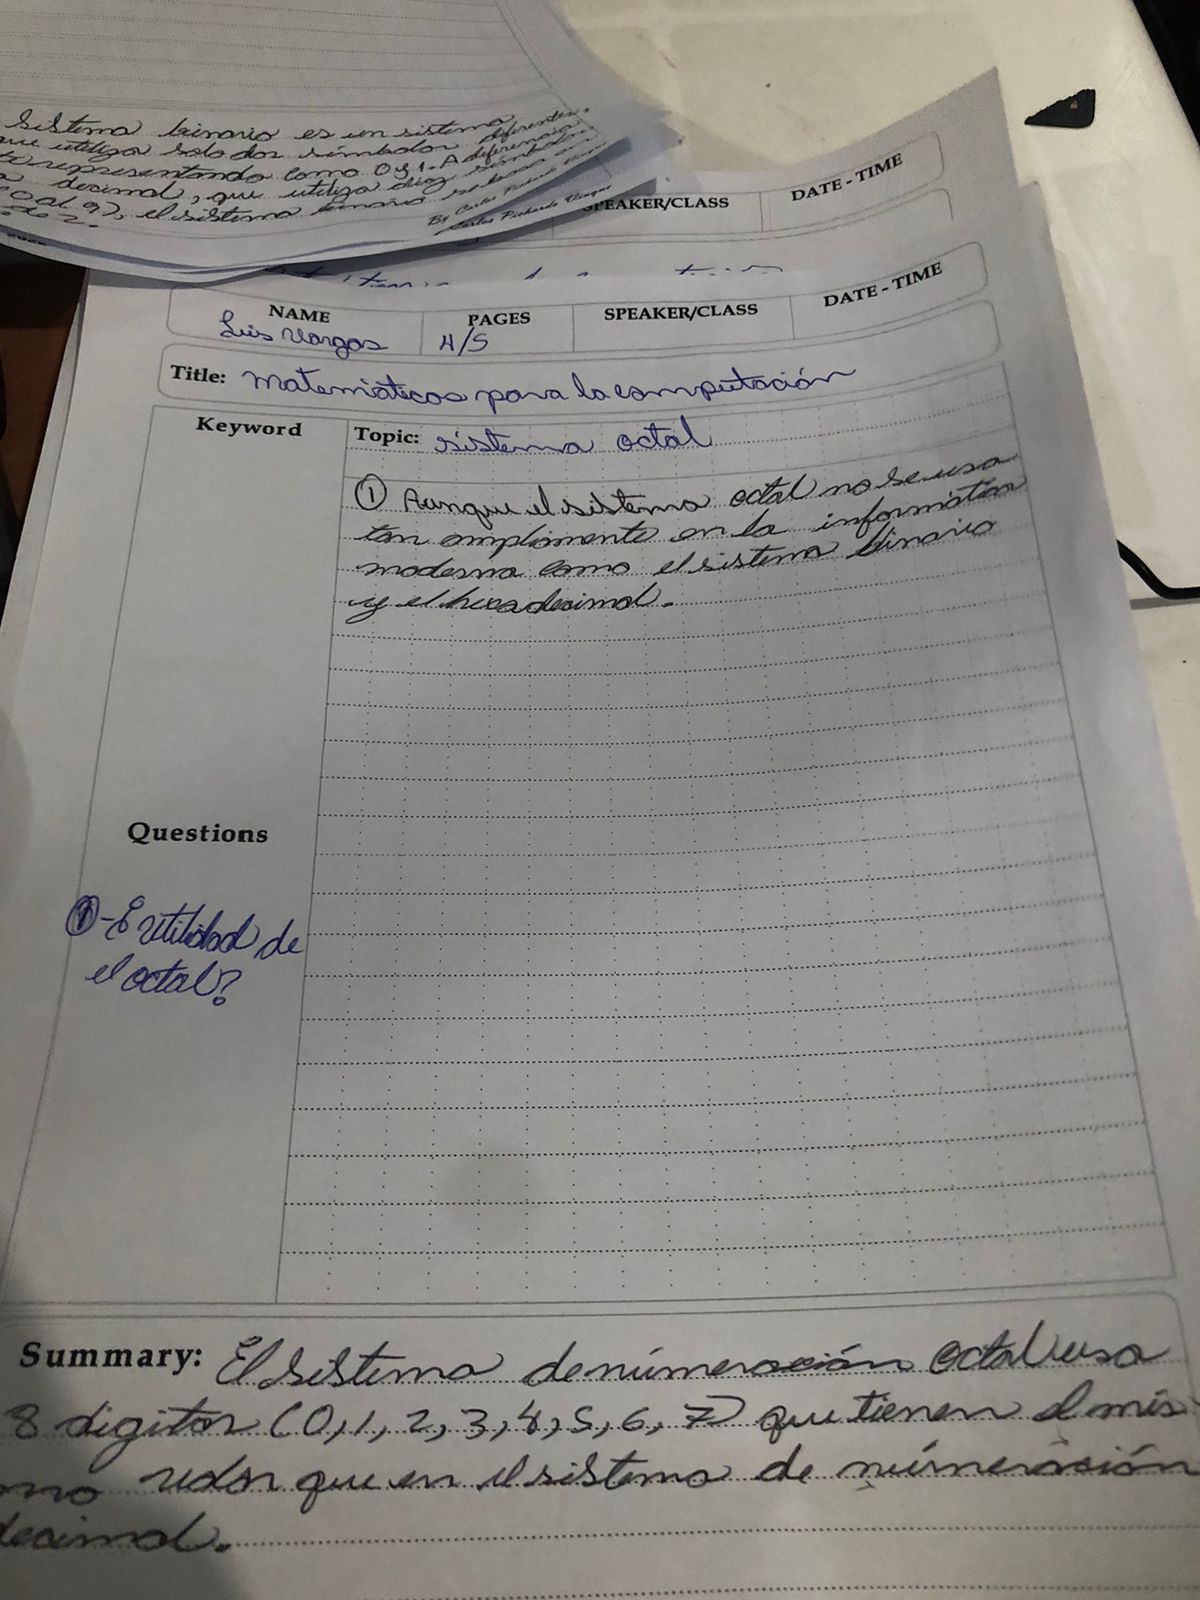 Sistema binario es un sistema
que utiliza solo dos símbolos diferentes,
representando como 0 y 1. A diferencia
decimal, que utiliza diez símbolos
0 al 9), el sistema binario se basa en
de 2.
By Carlos Pichardo Vargas
Carlos Pichardo Vargas
SPEAKER/CLASS DATE - TIME
NAME PAGES SPEAKER/CLASS DATE - TIME
Luis Vargas 4/5
Title: Matemáticas para la computación
Keyword Topic: sistema octal
① Aunque el sistema octal no se usa
tan ampliamente en la informática
moderna como el sistema binario
y el hexadecimal.
Questions
①-E utilidad de
el octal?
Summary: El sistema de númeración octal usa
8 digitos (0, 1, 2, 3, 4, 5, 6, 7) que tienen el mis
mo valor que en el sistema de númeración
decimal.